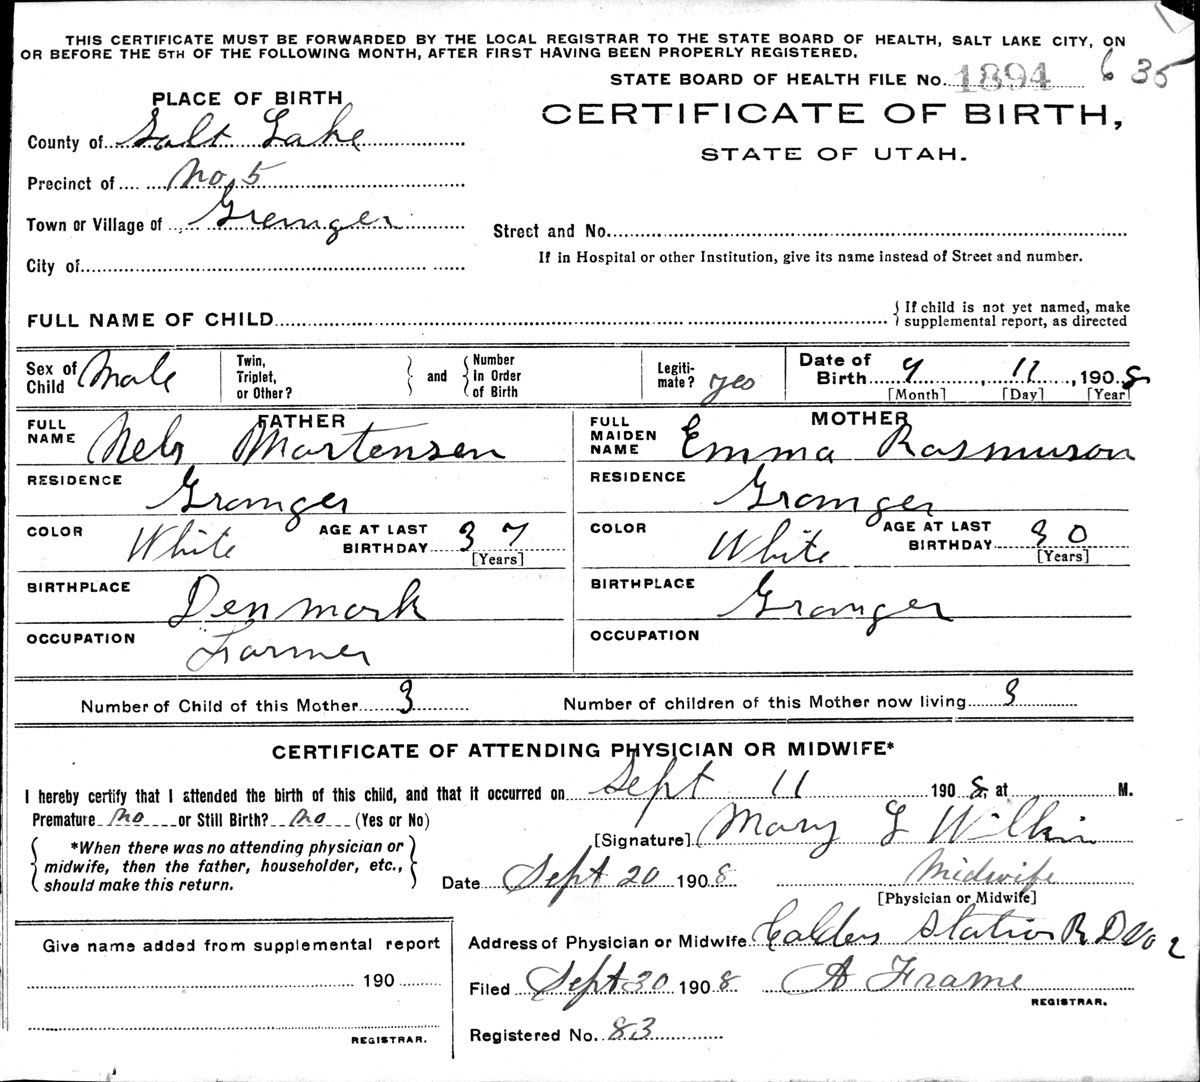 THIS CERTIFICATE MUST BE FORWARDED BY THE LOCAL REGISTRAR TO THE STATE BOARD OF HEALTH, SALT LAKE CITY, ON
OR BEFORE THE 5TH OF THE FOLLOWING MONTH, AFTER FIRST HAVING BEEN PROPERLY REGISTERED.
STATE BOARD OF HEALTH FILE No. 1894 635
PLACE OF BIRTH
CERTIFICATE OF BIRTH,
STATE OF UTAH.
County of Salt Lake
Precinct of No 5
Town or Village of Granger
Street and No.
City of
If in Hospital or other Institution, give its name instead of Street and number.
FULL NAME OF CHILD
{ If child is not yet named, make
supplemental report, as directed
Sex of Child Male
Twin, Triplet, or Other? } and { Number In Order of Birth
Legiti-mate? yes
Date of Birth 9, 11, 1908
[Month] [Day] [Year]
FATHER
FULL NAME Nels Mortensen
MOTHER
FULL MAIDEN NAME Emma Rasmuson
RESIDENCE Granger
RESIDENCE Granger
COLOR White AGE AT LAST BIRTHDAY 37 [Years]
COLOR White AGE AT LAST BIRTHDAY 30 [Years]
BIRTHPLACE Denmark
BIRTHPLACE Granger
OCCUPATION Farmer
OCCUPATION
Number of Child of this Mother 3
Number of children of this Mother now living 3
CERTIFICATE OF ATTENDING PHYSICIAN OR MIDWIFE*
I hereby certify that I attended the birth of this child, and that it occurred on Sept 11 1908, at M.
Premature no or Still Birth? no (Yes or No)
[Signature] Mary G Wilkin
*When there was no attending physician or
midwife, then the father, householder, etc.,
should make this return.
Date Sept 20 1908 Midwife
[Physician or Midwife]
Give name added from supplemental report
Address of Physician or Midwife Calders Station R D No 2
190
Filed Sept 30 1908 A Frame
REGISTRAR.
Registered No. 83
REGISTRAR.